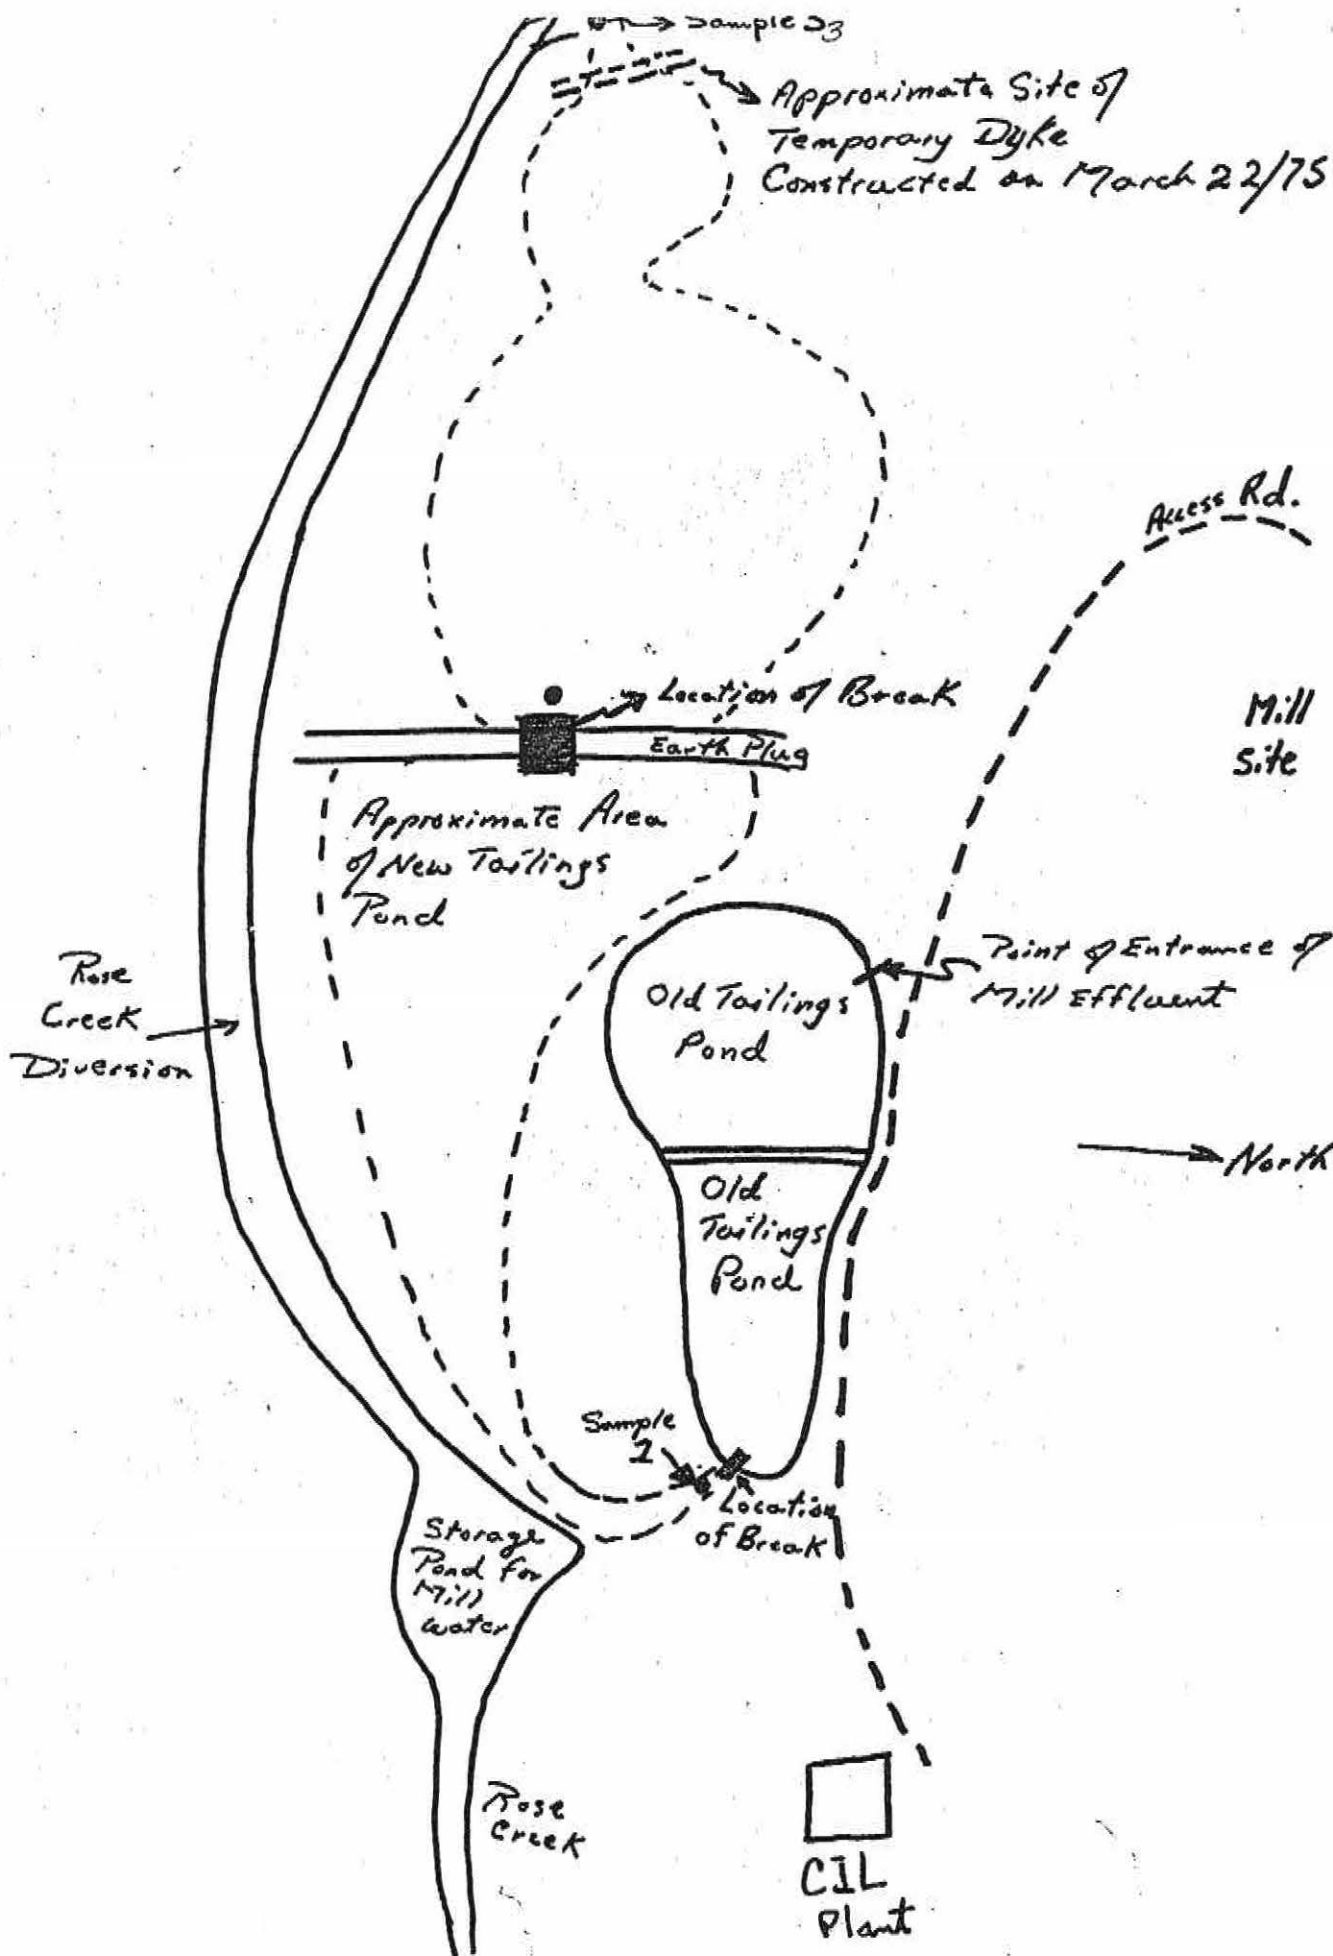 Sample S3
Approximate Site of
Temporary Dyke
Constructed on March 22/75
Access Rd.
Location of Break
Earth Plug
Mill
Site
Approximate Area
of New Tailings
Pond
Rose
Creek
Diversion
Old Tailings
Pond
Point of Entrance of
Mill Effluent
North
Old
Tailings
Pond
Sample
1
Location
of Break
Storage
Pond for
Mill
Water
Rose
Creek
CIL
Plant